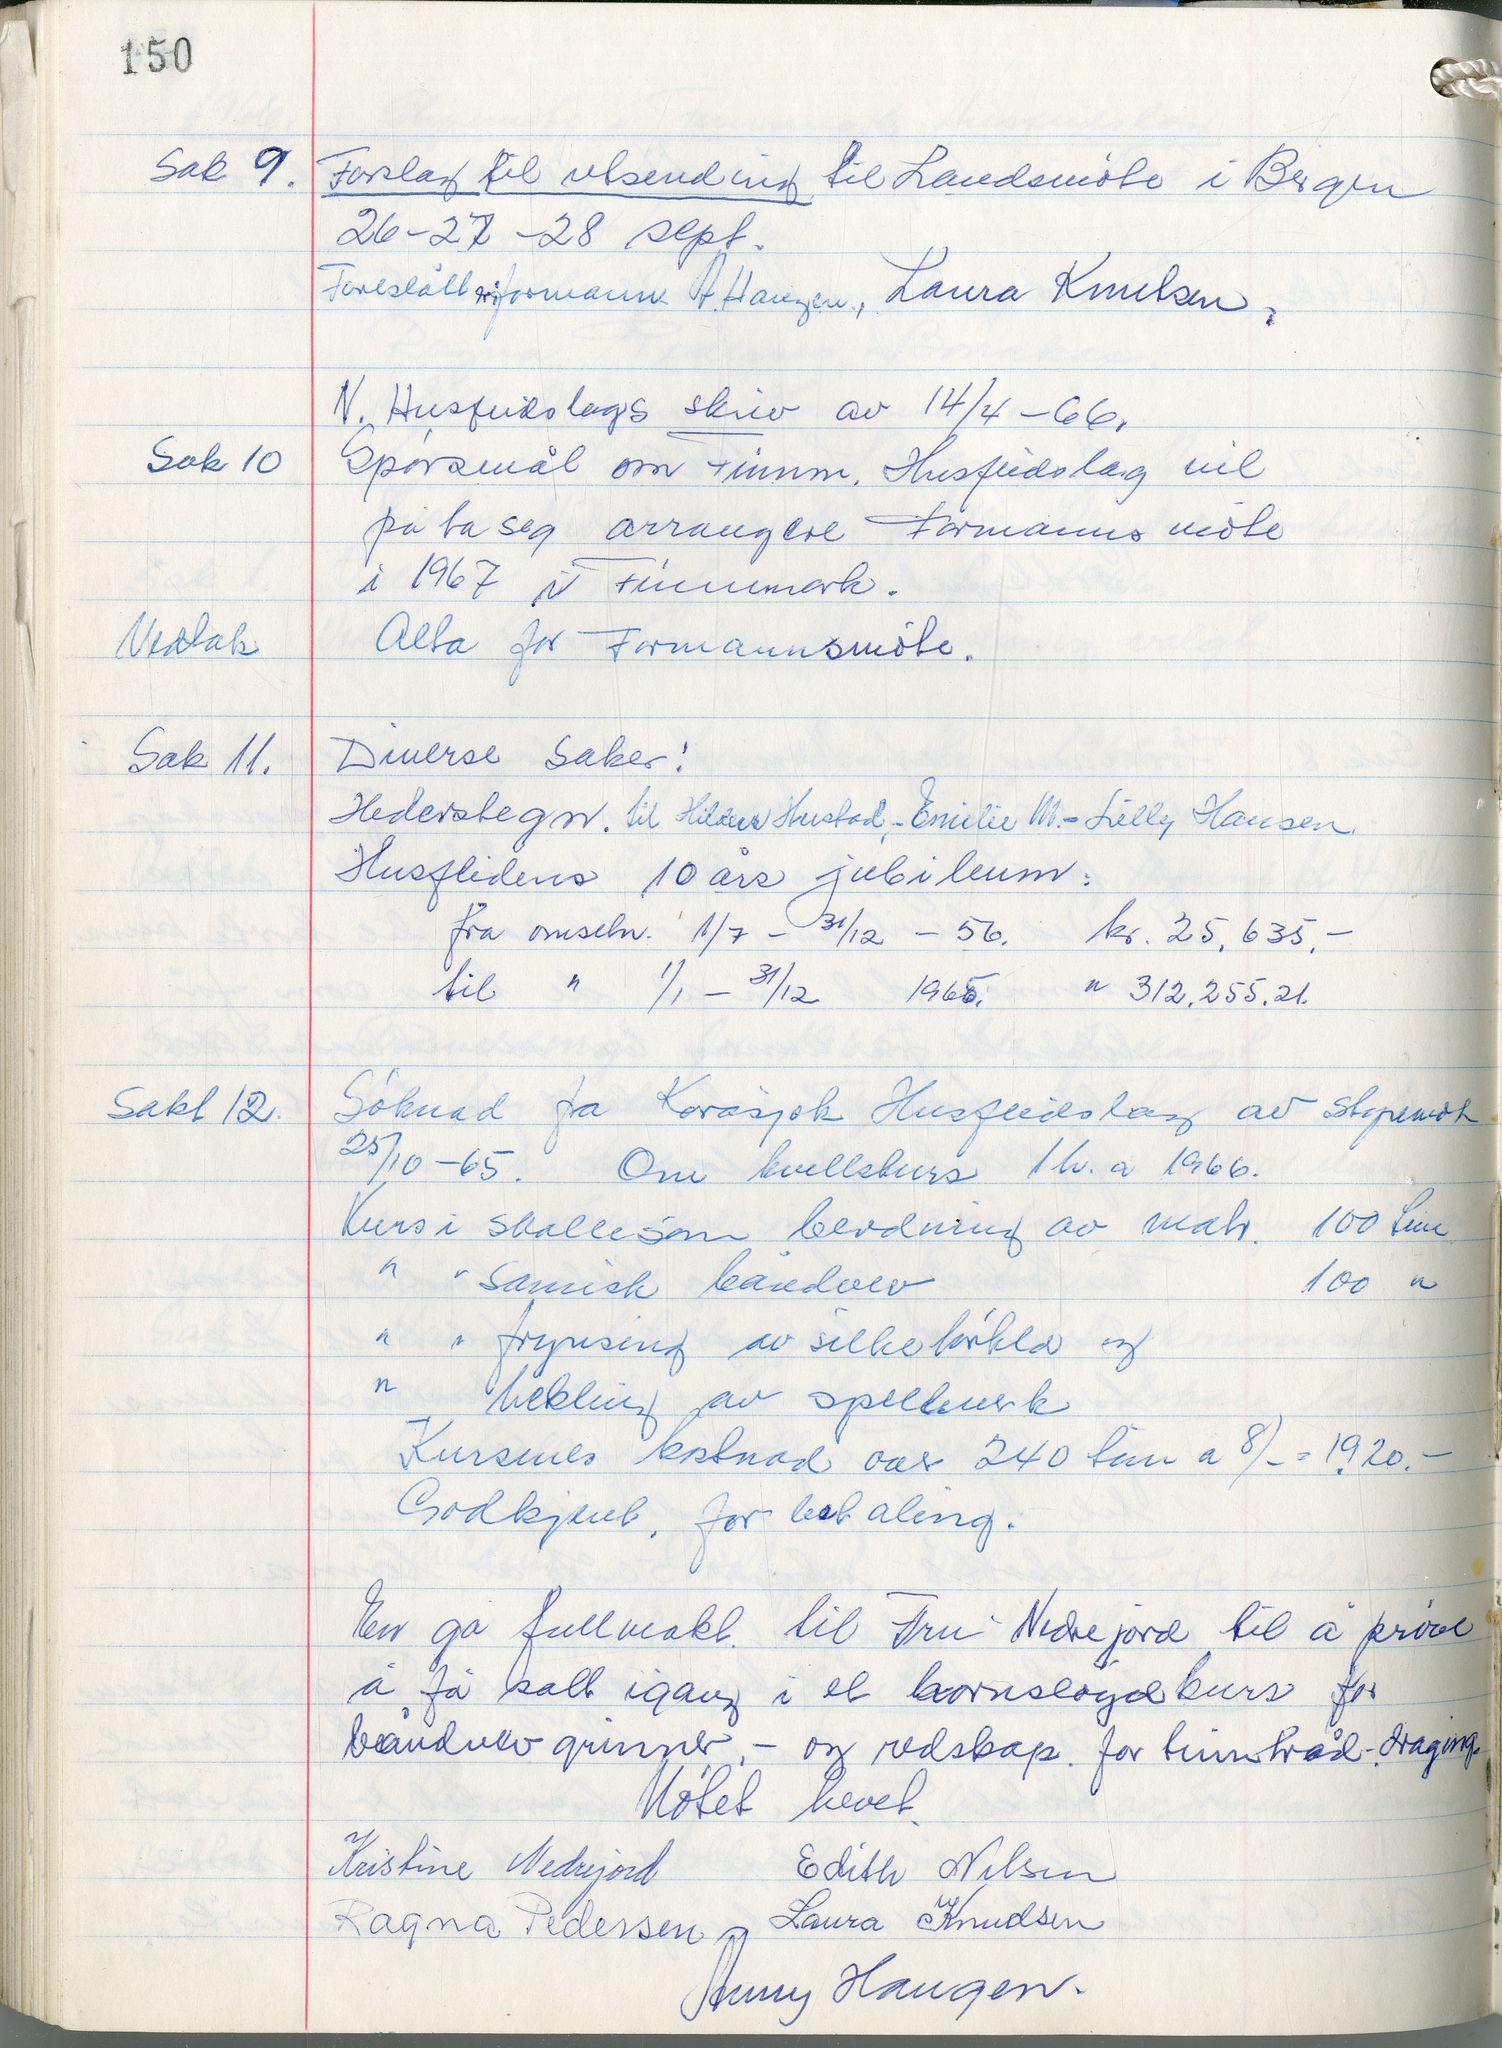 150
Sak 9. Forslag til utsending til Landsmöte i Bergen
26-27-28 sept.
Foreslått formann A. Haugen., Laura Knutsen,
N. Husflidslags skriv av 14/4-66.
Sak 10 Spörsmål om Finnm. Husflidslag vil
påta seg arrangere Formanns möte
i 1967 i Finnmark.
Vedtak Alta for Formannsmöte.
Sak 11. Diverse saker!
Hederstegn. til Hildur Hustad,- Emilie M.- Lilly Hansen
Husflidens 10 års jubileum:
fra omsetn. 1/7 - 31/12 - 56. kr. 25,635,-
til " 1/1 - 31/12 1965. " 312.255.21.
Sakl 12. Söknad fra Karasjok Husflidslag av
25/10-65. Om kveldskurs 1 h. a 1966.
Kurs i skallesöm beredning av matr. 100 tim
" " samisk båndvev 100 "
" " frynsing av silketörkle og
" hekling av spelluerk
Kursenes kostnad var 240 tim a 8/- = 1920.-
Godkjent, for betaling.
En ga fullmakt. til Fru Nedrejord til å pröve
å få satt igang i et hornslöydkurs for
båndvev grinner,- og redskap. for tinntråd-draging.
Mötet hevet.
Kristine Nedrejord Edith Nilsen
Ragna Pedersen Laura Knudsen
Anny Haugen.